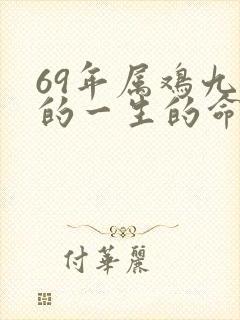 69年属鸡九
的一生的命
付華麗